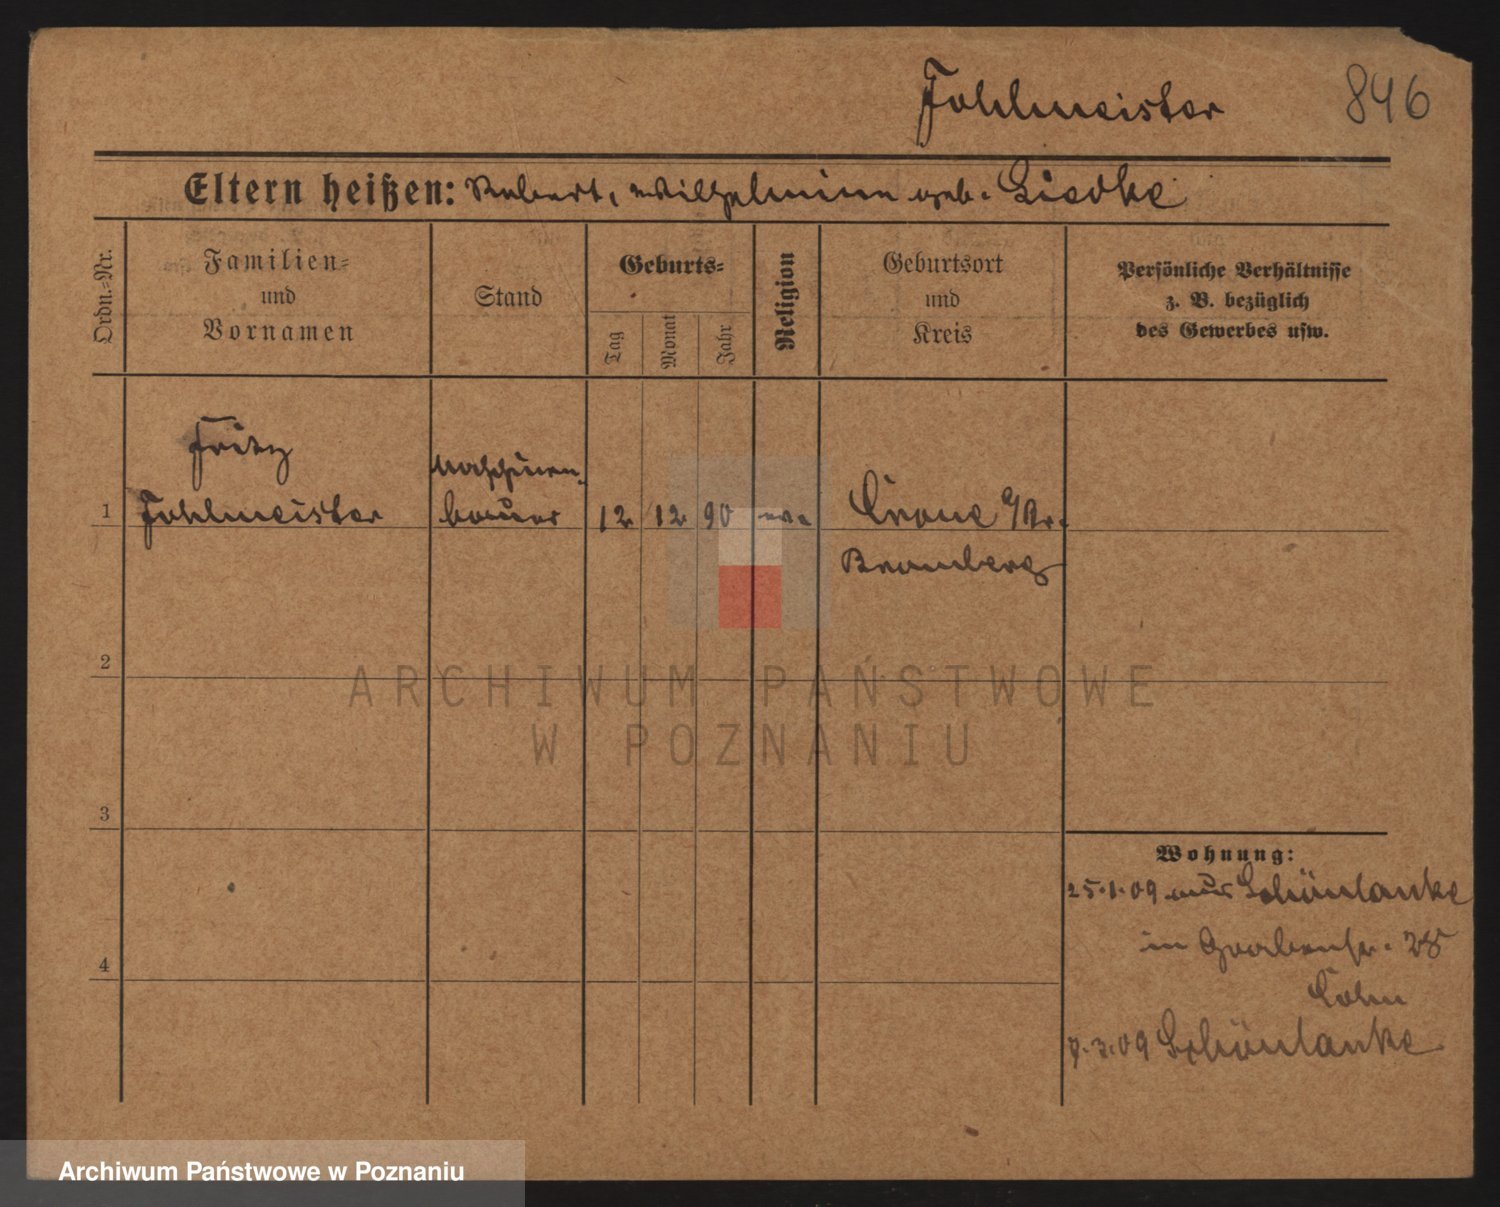 Fohlmeister
846
Eltern heißen: Robert, Wilhelmine geb. Liedke
Ordn.-Nr.
Familien-
und
Vornamen
Stand
Geburts-
Tag
Monat
Jahr
Religion
Geburtsort
und
Kreis
Persönliche Verhältnisse
z. B. bezüglich
des Gewerbes usw.
Fritz
Maschinen-
1 Fohlmeister bauer 12 12 90 ev. Crone a/Br.
Bromberg
2
ARCHIWUM PAŃSTWOWE
W POZNANIU
3
Wohnung:
25.1.09 aus Schönlanke
4
in Grabenstr. 28
Cohn
9.3.09 Schönlanke
Archiwum Państwowe w Poznaniu